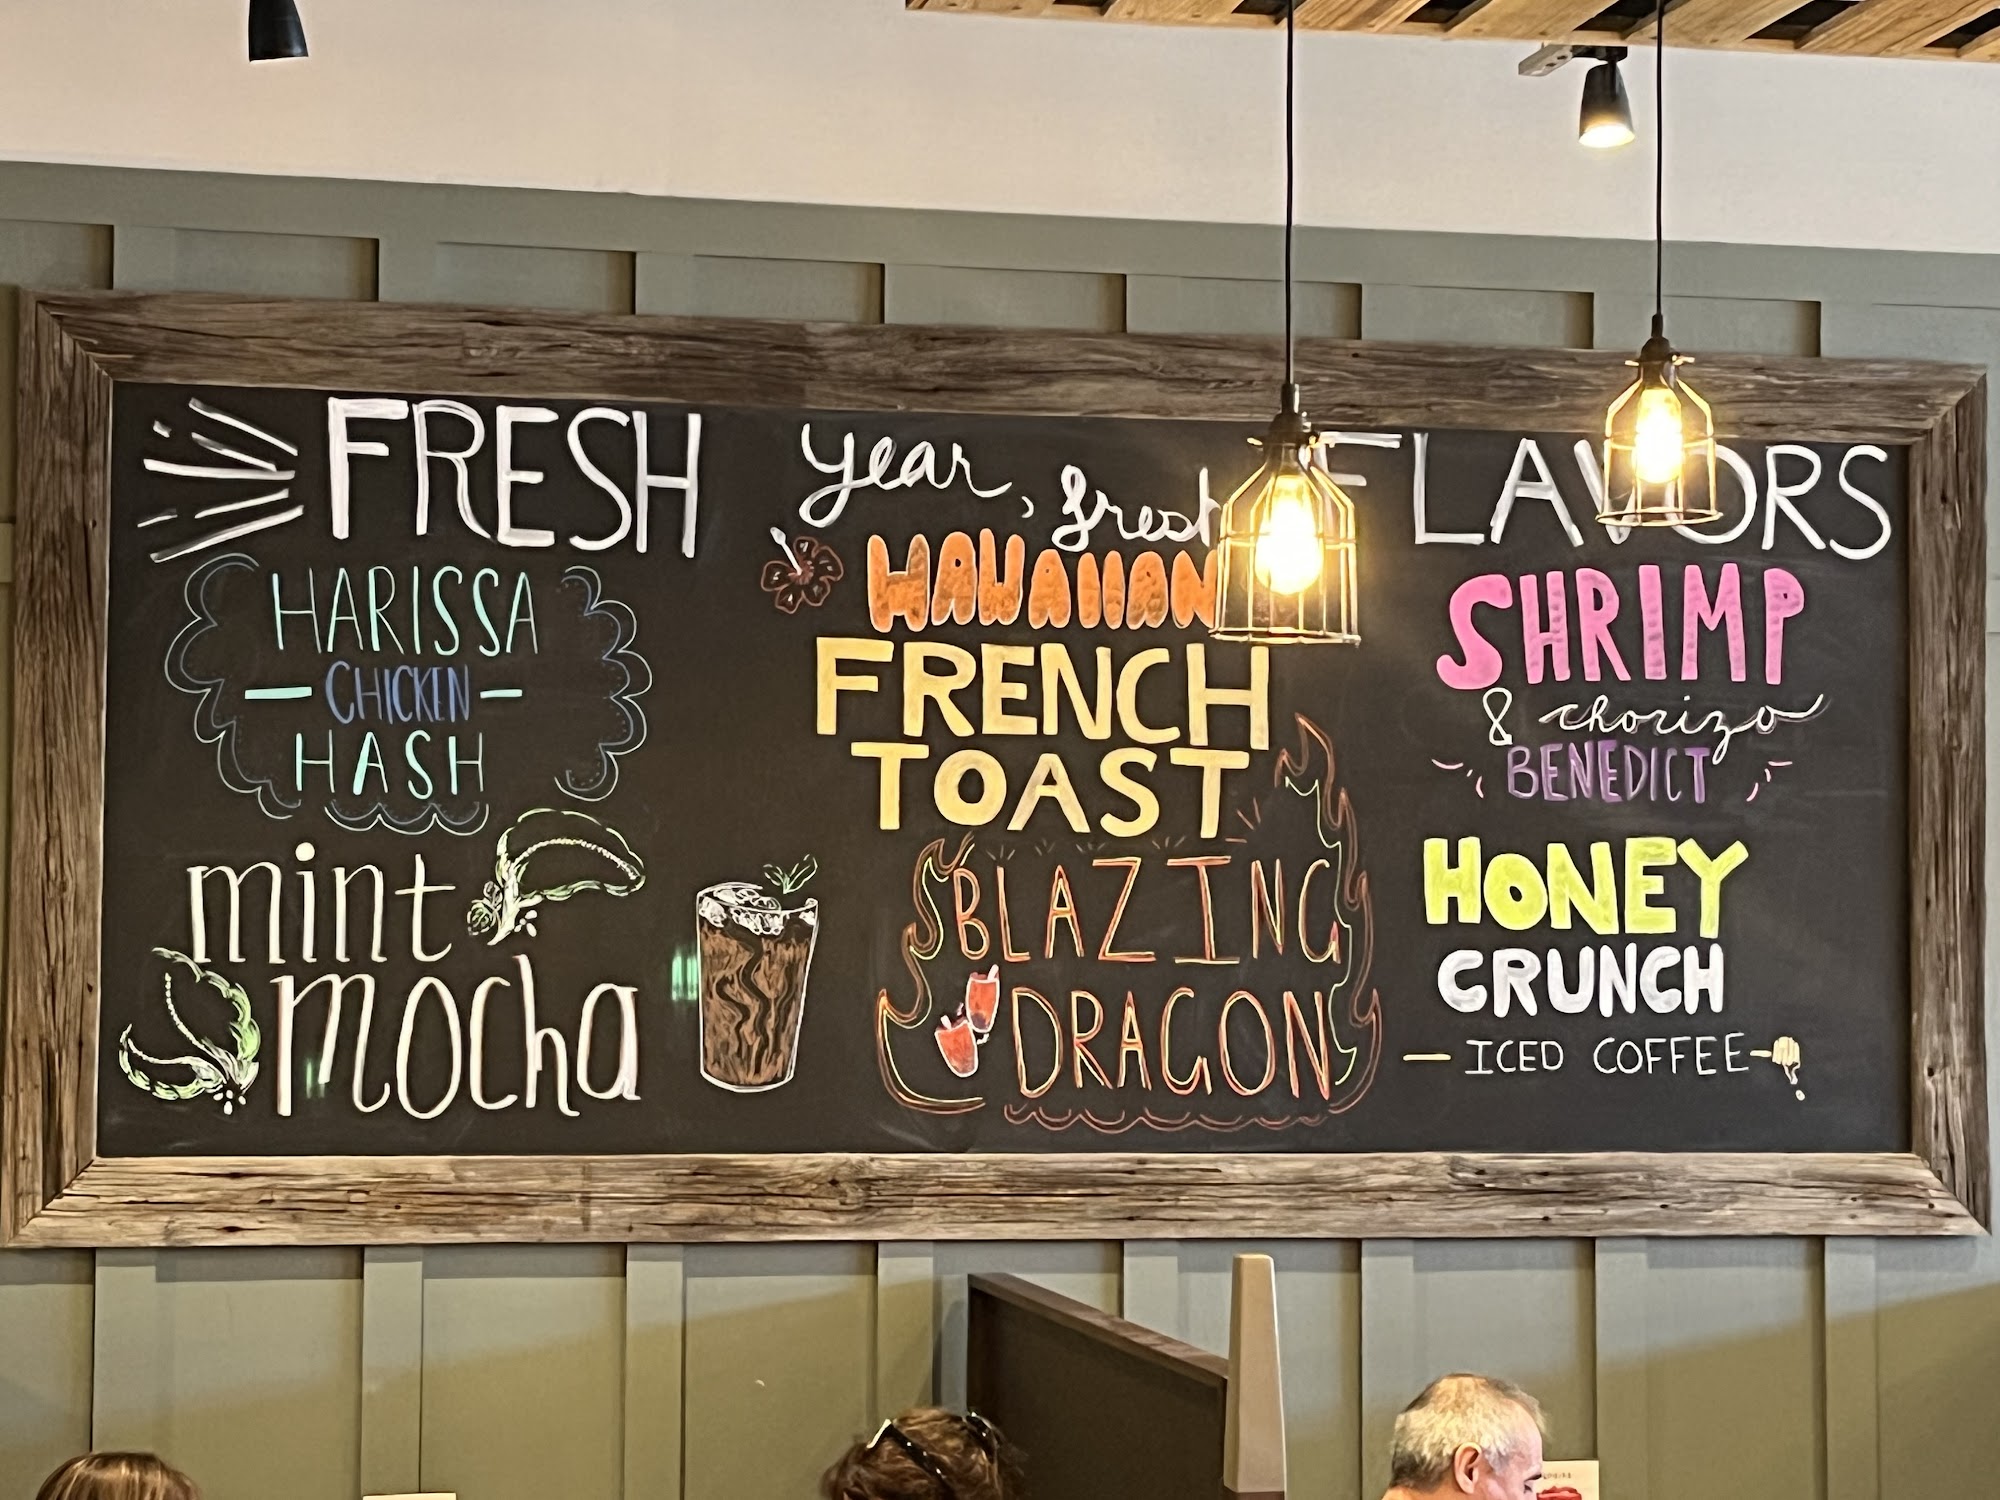 FRESH year, fresh FLAVORS
HARISSA
CHICKEN
HASH
mint
mocha
HAWAIIAN
FRENCH
TOAST
BLAZING
DRAGON
SHRIMP
& chorizo
BENEDICT
HONEY
CRUNCH
ICED COFFEE